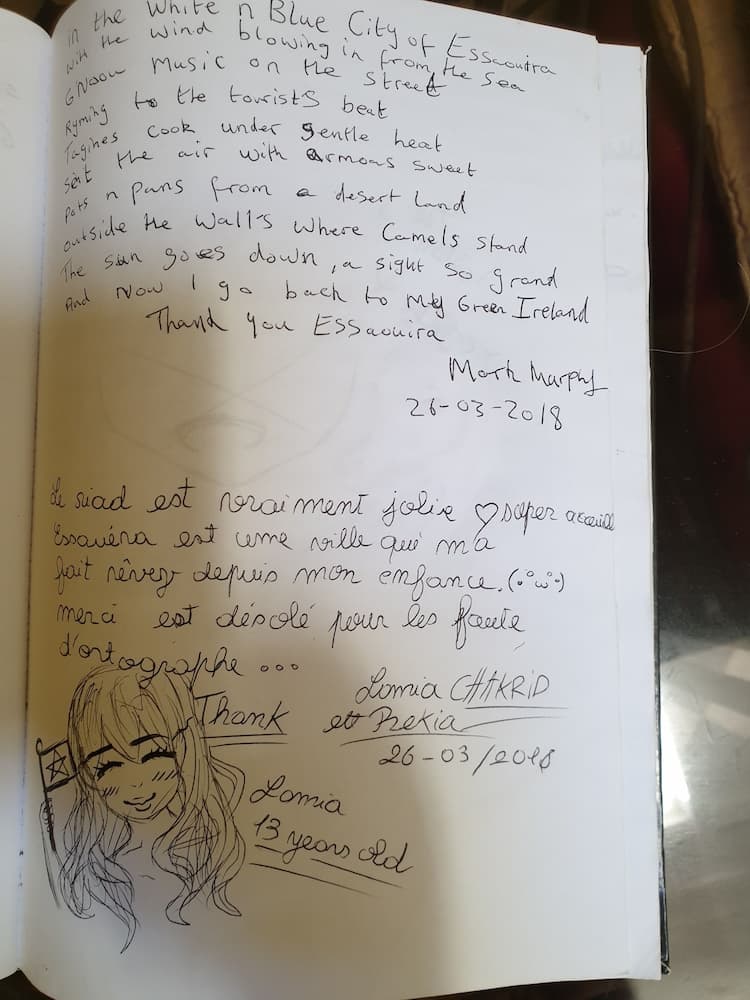 in the White n Blue City of Essaouira
with the wind blowing in from the Sea
GNaou Music on the street
Ryming to the tourists beat
Tagines cook under gentle heat
Sent the air with armoas sweet
Pots n pans from a desert Land
outside the Wall's where Camels stand
The sun goes down, a sight so grand
And Now I go back to My Green Ireland
Thank you Essaouira
Mark Murphy
26-03-2018
Le riad est vraiment jolie ♡ super accueille
Essauéra est une ville qui m'a
fait rêver depuis mon enfance.
merci est désolé pour les faute
d'ortographe ...
Thank
Lamia CHAKRID
et Rekia
26-03/2018
Lamia
13 years old